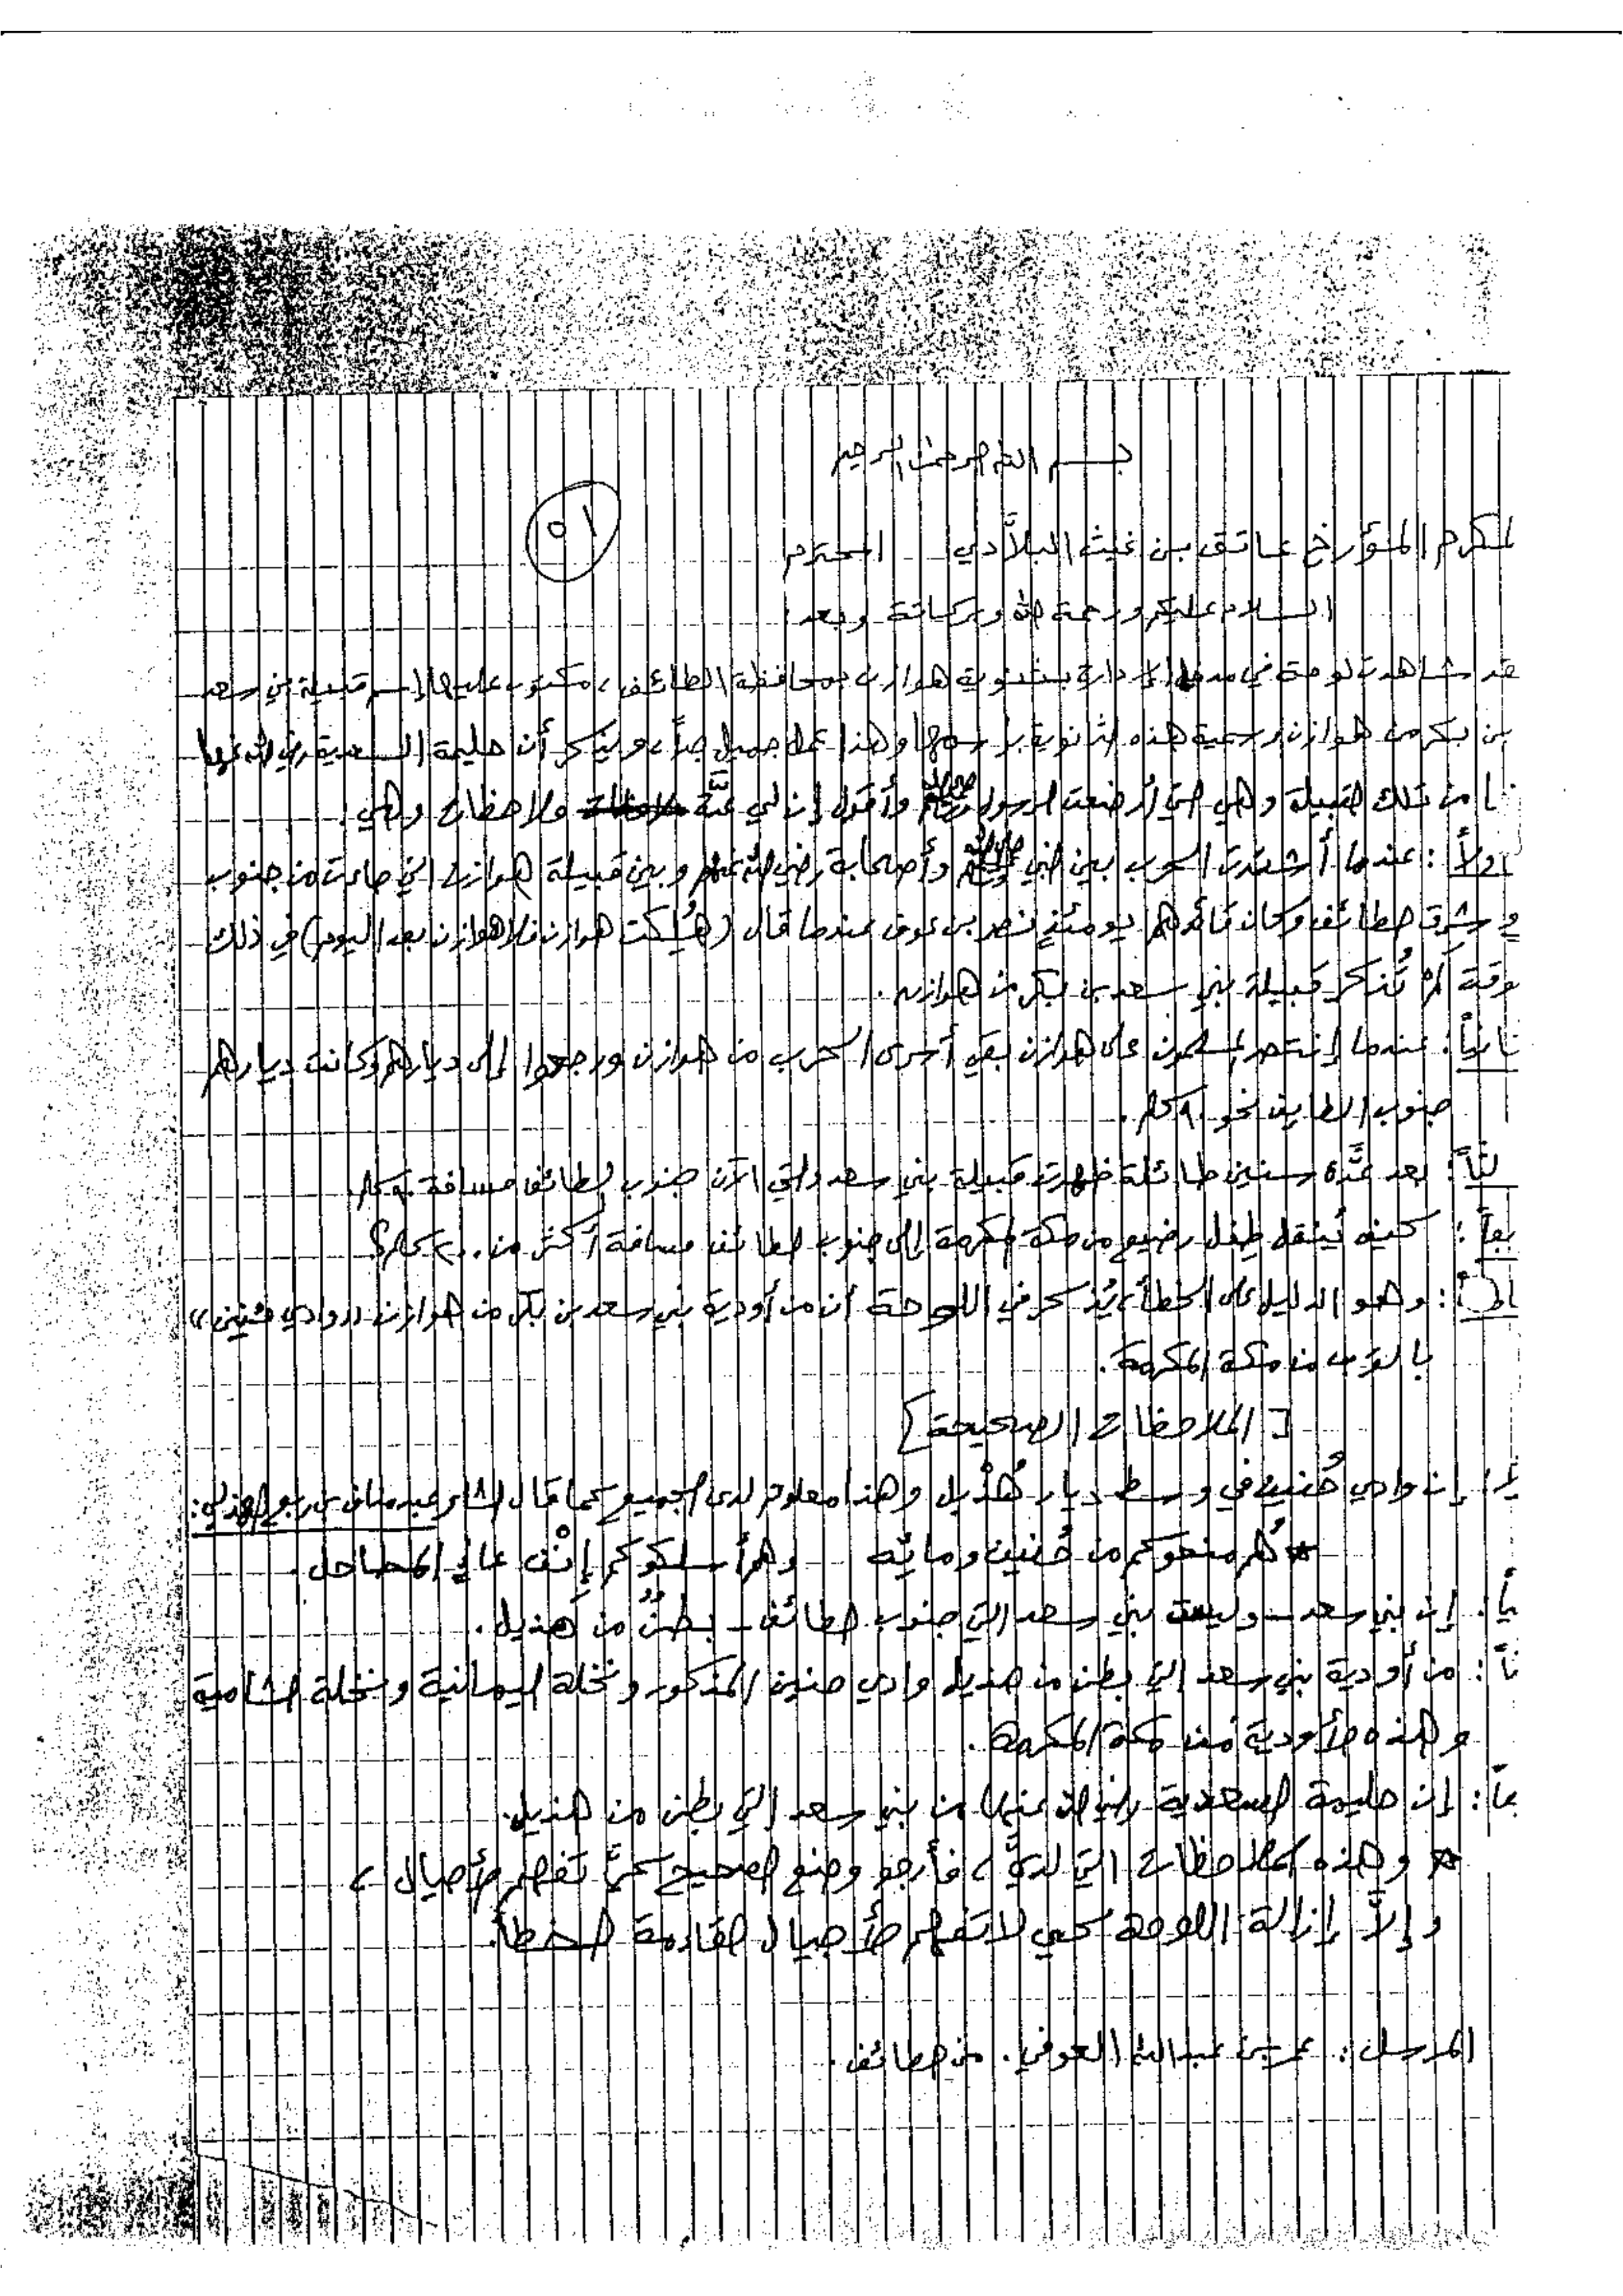 بسم الله الرحمن الرحيم
٥١
لمكرم المؤرخ عاتق بن غيث البلادي المحترم
السلام عليكم ورحمة الله وبركاتة وبعد:
قد شاهدت لوحة في مدخل الإدارة بثنوية هوازن بمحافظة الطائف، مكتوب عليها إسم قبيلة بني سعد
بن بكر من هوازن وسمية هذه الثانوية بإسمها وهذا عمل جميل جداً، ويذكر أن حليمة السعدية رضي الله عنها
من تلك القبيلة وهي التي أرضعت الرسول ﷺ وأقول إن لي عدَّة ملاحظات وهي:
أولاً: عندما أشتدت الحرب بين النبي ﷺ وأصحابة رضي الله عنهم وبين قبيلة هوازن التي جاءت من جنوب
و شرق الطائف وكان قائدهم يومئذٍ نصر بن عوف عندما قال (هُلِكت هوازن فلا هوازن بعد اليوم) في ذلك
وقة لم تُذكر قبيلة بني سعد بن بكر من هوازن.
ثانياً: عندما إنتصر المسلمون على هوازن بقي أسرى الحرب من هوازن ورجعوا إلى ديارهم وكانت ديارهم
جنوب الطايف نحو ٩٠ كلم.
لثاً: بعد عدَّة سنين طائلة ظهرت قبيلة بني سعد والتي الآن جنوب الطائف مسافة ٩٠ كلم.
بعاً: كيف يُنقل طفل رضيع من مكة المكرمة إلى جنوب الطائف مسافة أكثر من ٢٠٠ كلم؟
: وهو الدليل على الخطأ، يُذكر في اللوحة أن من أودية بني سعد بن بكر من هوازن ((وادي حُنين))
بالقرب من مكة المكرمة.
[الملاحظات الصحيحة]
إن وادي حُنين في وسط ديار هُذيل وهذا معلوم لدى الجميع كما قال الشاعر عبد مناف بن ربع الهذلي:
* هُم منعوكم من حُنين ومائه وهم أسلكوكم إنْف عاذ المطاحل.
ياً: إن بني سعد - وليست بني سعد التي جنوب الطائف - بطنٌ من هُذيل.
ثاً: من أودية بني سعد التي بطن من هذيل وادي حنين المذكور ونخلة اليمانية ونخلة الشامية
وهذه الأودية من مكة المكرمة.
عاً: إن حليمة السعدية رضي الله عنها من بني سعد التي بطن من هذيل.
* وهذه الملاحظات التي لديَّ، فأرجو وضع الصحيح كي تفهم الأجيال،
وإلاَّ إزالة اللوحة كي لا تفهم الأجيال القادمة الخطأ.
المرسل: عمر بن عبدالله العوفي. من الطائف.